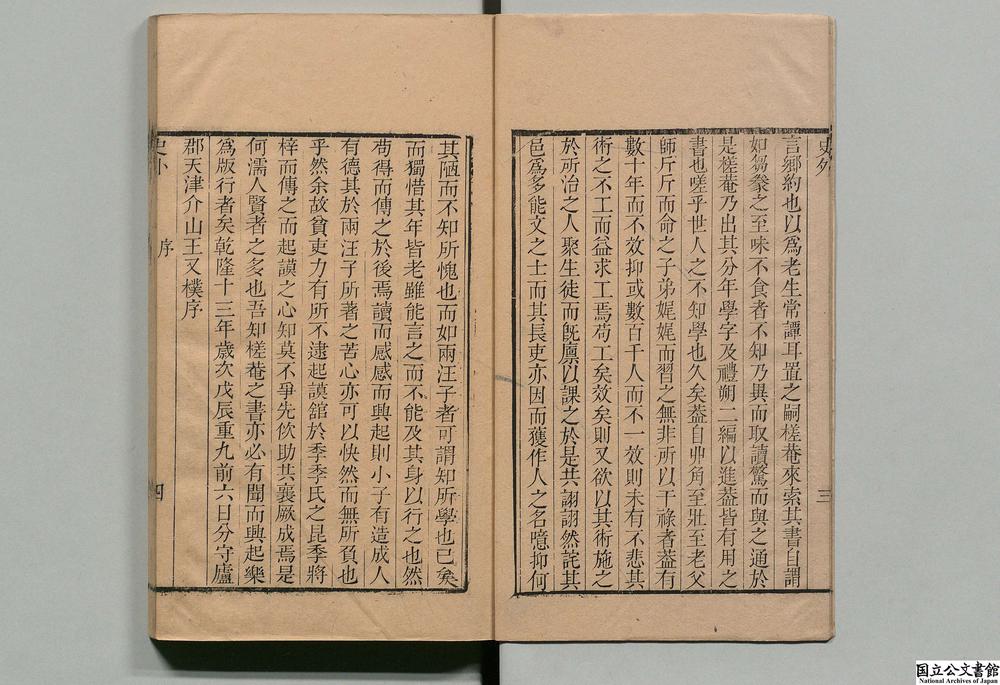 史外
三
言鄉約也以爲老生常譚耳置之嗣槎菴來索其書自謂
如芻豢之至味不食者不知乃異而取讀驚而與之通於
是槎菴乃出其分年學字及禮朔二編以進葢皆有用之
書也嗟乎世人之不知學也久矣葢自丱角至壯至老父
師斤斤而命之子弟娓娓而習之無非所以干祿者葢有
數十年而不效抑或數百千人而不一效則未有不悲其
術之不工而益求工焉苟工矣效矣則又欲以其術施之
於所治之人聚生徒而旣廪以課之於是共詡詡然詫其
邑爲多能文之士而其長吏亦因而獲作人之名噫抑何
其陋而不知所愧也而如兩汪子者可謂知所學也已矣
而獨惜其年皆老雖能言之而不能及其身以行之也然
苟得而傳之於後焉讀而感感而興起則小子有造成人
有德其於兩汪子所著之苦心亦可以快然而無所負也
乎然余故貧吏力有所不逮起謨舘於季季氏之昆季將
梓而傳之而起謨之心知莫不爭先佽助共襄厥成焉是
何濡人賢者之多也吾知槎菴之書亦必有聞而興起樂
爲版行者矣乾隆十三年歲次戊辰重九前六日分守廬
郡天津介山王又樸序
序
四
国立公文書館
National Archives of Japan